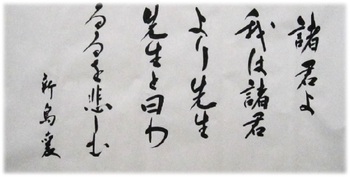 諸君よ
我は諸君
より先生
先生と曰わ
るるを悲しむ
新島襄